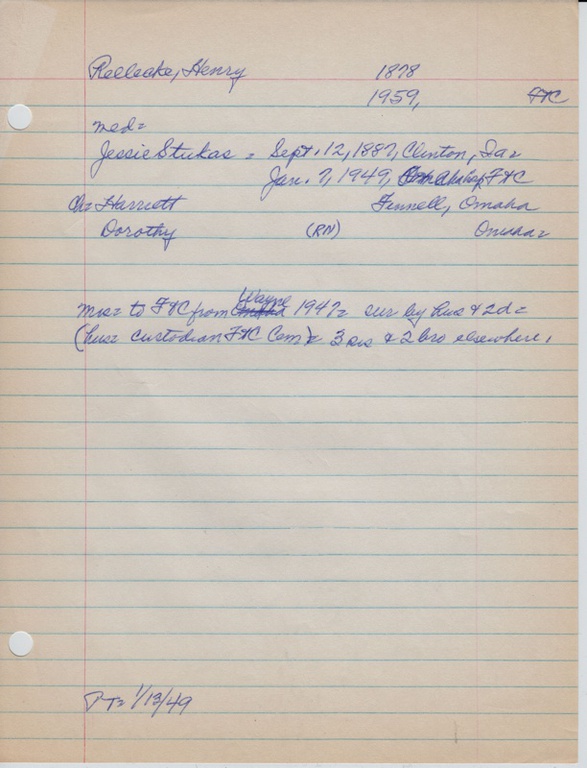 Reeleake, Henry 1878
1959, FtC
med=
Jessie Stukas = Sept. 12, 1887, Clinton, Ia=
Jan. 7, 1949, FtC
Ch= Harriett Fennell, Omaha
Dorothy (RN) Omaha=
Wayne
mov= to FtC from Omaha 1947= sur by hus & 2d=
(hus= custodian FtC Cem)= 3 sis & 2 bro elsewhere,
PT= 1/13/49